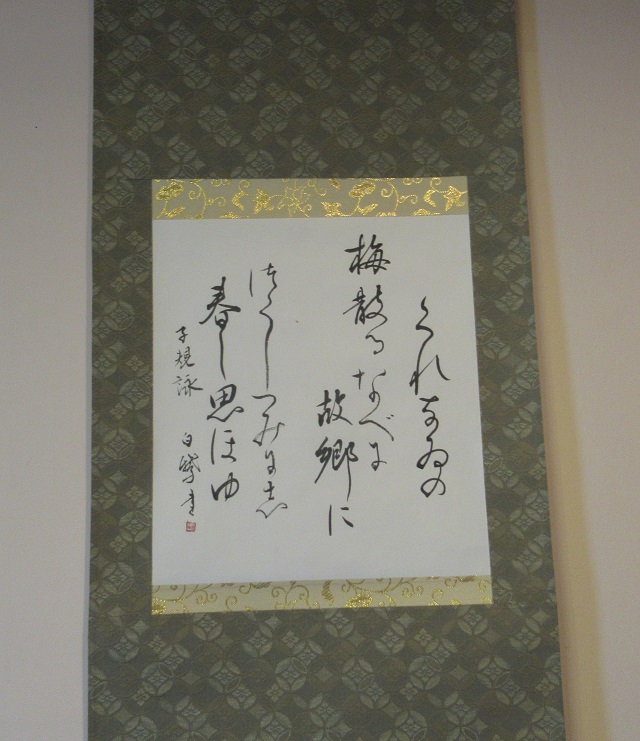 くれなゐの
梅散るなべに
故郷に
つくしつみにし
春し思ほゆ
子規詠